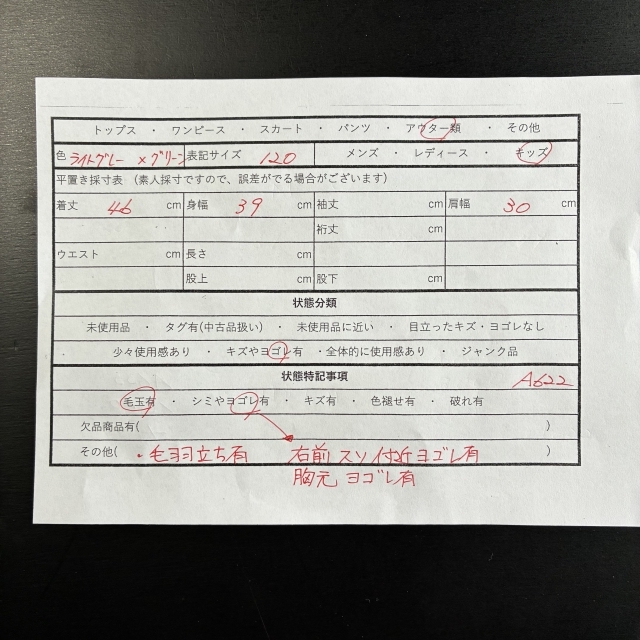 トップス ・ ワンピース ・ スカート ・ パンツ ・ アウター類 ・ その他
色 ライトグレー × グリーン 表記サイズ 120 メンズ ・ レディース ・ キッズ
平置き採寸表 (素人採寸ですので、誤差がでる場合がございます)
着丈 46 cm 身幅 39 cm 袖丈 cm 肩幅 30 cm
裄丈 cm
ウエスト cm 長さ cm
股上 cm 股下 cm
状態分類
未使用品 ・ タグ有(中古品扱い) ・ 未使用品に近い ・ 目立ったキズ・ヨゴレなし
少々使用感あり ・ キズやヨゴレ有 ・全体的に使用感あり ・ ジャンク品
状態特記事項 A622
毛玉有 ・ シミやヨゴレ有 ・ キズ有 ・ 色褪せ有 ・ 破れ有
欠品商品有( )
その他( ・毛羽立ち有 右前スソ付近ヨゴレ有 )
胸元ヨゴレ有